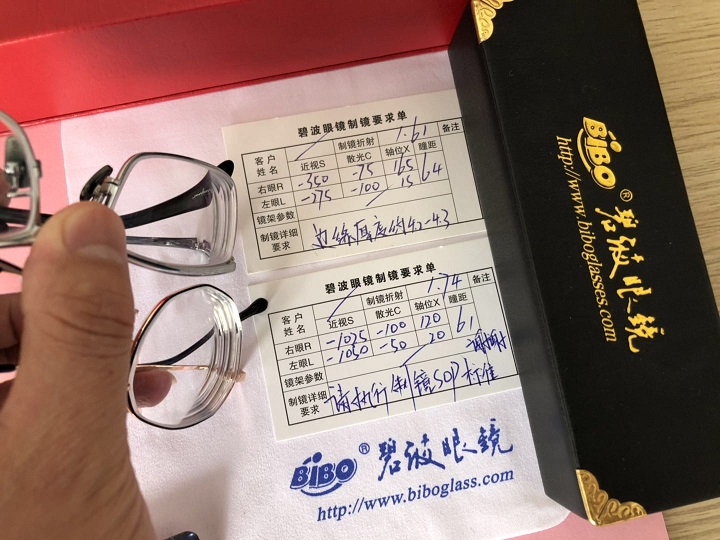 碧波眼镜制镜要求单
客户姓名 制镜折射 1.61 备注
近视S 散光C 轴位X 瞳距
右眼R -350 -75 165 64
左眼L -275 -100 15
镜架参数
制镜详细要求 边缘厚度约
碧波眼镜制镜要求单
客户姓名 制镜折射 1.74 备注
近视S 散光C 轴位X 瞳距
右眼R -1025 -100 120 61
左眼L -1050 -50 20
镜架参数 谢谢
制镜详细要求 请执行制镜SOP标准
BiBO® 碧波眼镜
http://www.biboglass.com
BiBO® 碧波眼镜
http://www.biboglasses.com